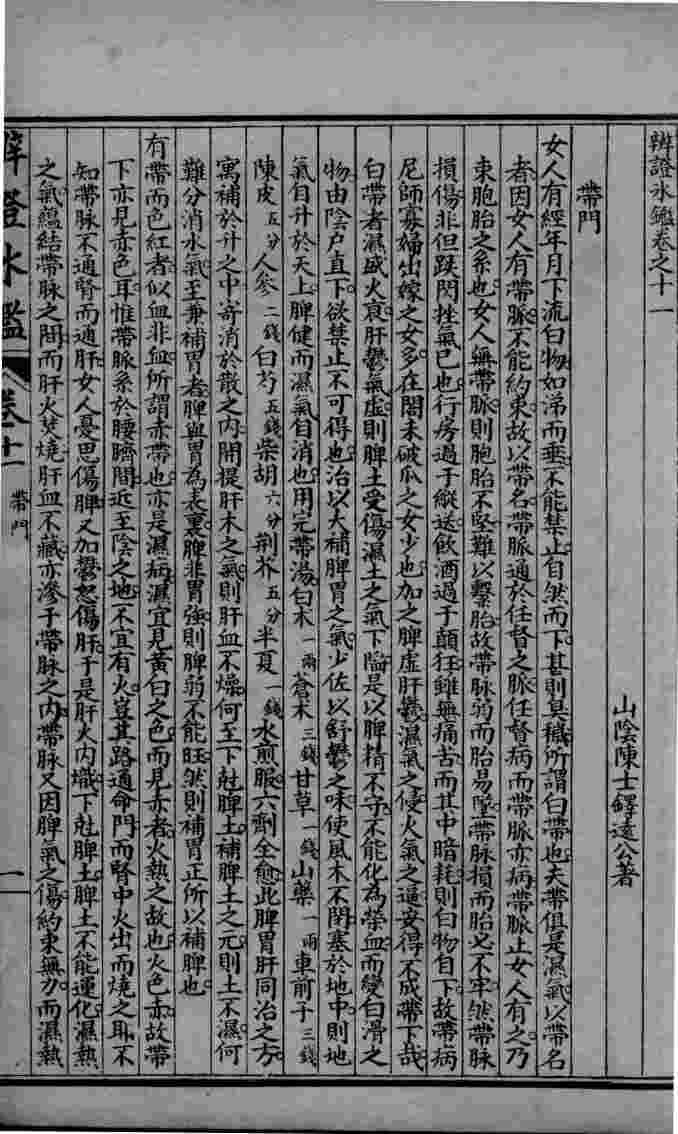 辨證冰鑑卷之十一
山陰陳士鐸遠公著
帶門
女人有經年月下流白物如涕而垂不能禁止自然而下甚則臭穢所謂白帶也夫帶俱是濕氣以帶名
者因女人有帶脈不能約束故以帶名帶脈通於任督之脈任督病而帶脈亦病帶脈止女人有之乃
束胞胎之系也女人無帶脈則胞胎不堅難以繫胎故帶脈弱而胎易墜帶脈損而胎必不牢然帶脈
損傷非但跌閃挫氣已也行房過于縱送飲酒過于顛狂雖無痛苦而其中暗耗則白物自下故帶病
尼師寡婦出嫁之女多在閣未破瓜之女少也加之脾虛肝鬱濕氣之侵火氣之逼安得不成帶下哉
白帶者濕盛火衰肝鬱氣虛則脾土受傷濕土之氣下陷是以脾精不守不能化為榮血而變白滑之
物由陰戶直下欲禁止不可得也治以大補脾胃之氣少佐以舒鬱之味使風木不閉塞於地中則地
氣自升於天上脾健而濕氣自消也用完帶湯白朮一兩蒼朮三錢甘草一錢山藥一兩車前子三錢
陳皮五分人參二錢白芍五錢柴胡六分荆芥五分半夏一錢水煎服六劑全愈此脾胃肝同治之方
寓補於升之中寄消於散之內開提肝木之氣則肝血不燥何至下尅脾土補脾土之元則土不濕何
難分消水氣至兼補胃者脾與胃為表裏脾非胃強則脾弱不能旺然則補胃正所以補脾也
有帶而色紅者似血非血所謂赤帶也亦是濕病濕宜見黃白之色而見赤者火熱之故也火色赤故帶
下亦見赤色耳惟帶脈系於腰臍間近至陰之地不宜有火豈其路通命門而腎中火出而燒之耳不
知帶脈不通腎而通肝女人憂思傷脾又加鬱怒傷肝于是肝火內熾下尅脾土脾土不能運化濕熱
之氣蘊結帶脈之間而肝火焚燒肝血不藏亦滲于帶脈之內帶脈又因脾氣之傷約束無力而濕熱
辨證冰鑑 卷十一 帶門 一